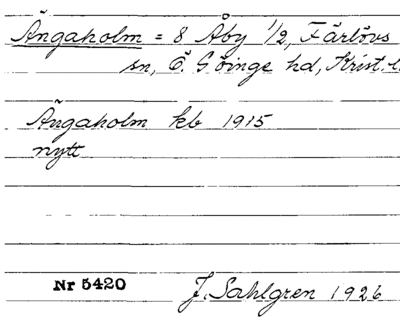 Ängaholm = 8 Åby 1/2, Färlövs
sn, Ö. Göinge hd, Krist. l.
Ängaholm kb 1915
nytt
Nr 5420 J. Sahlgren 1926